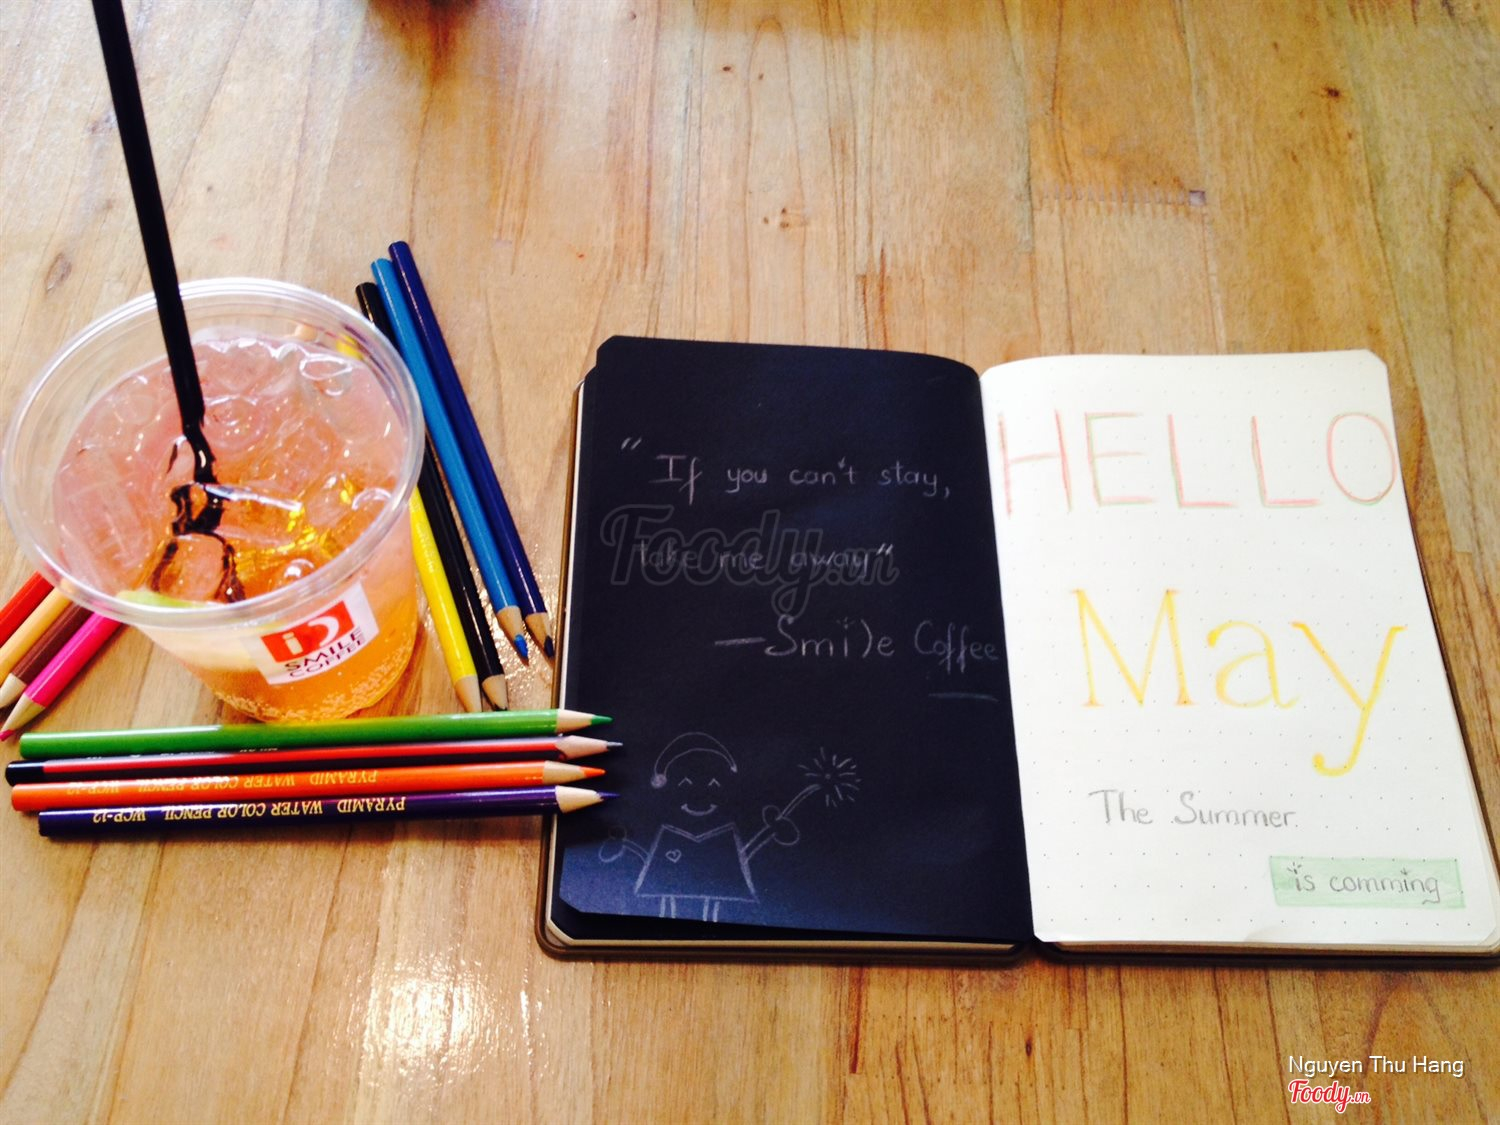 SMILE
COFFEE
PYRAMID WATER COLOR PENCIL WCP-12
PYRAMID WATER COLOR PENCIL WCP-12
"If you can't stay,
take me away"
—Smile Coffee
Foody.vn
HELLO
May
The Summer
is comming
Nguyen Thu Hang
Foody.vn